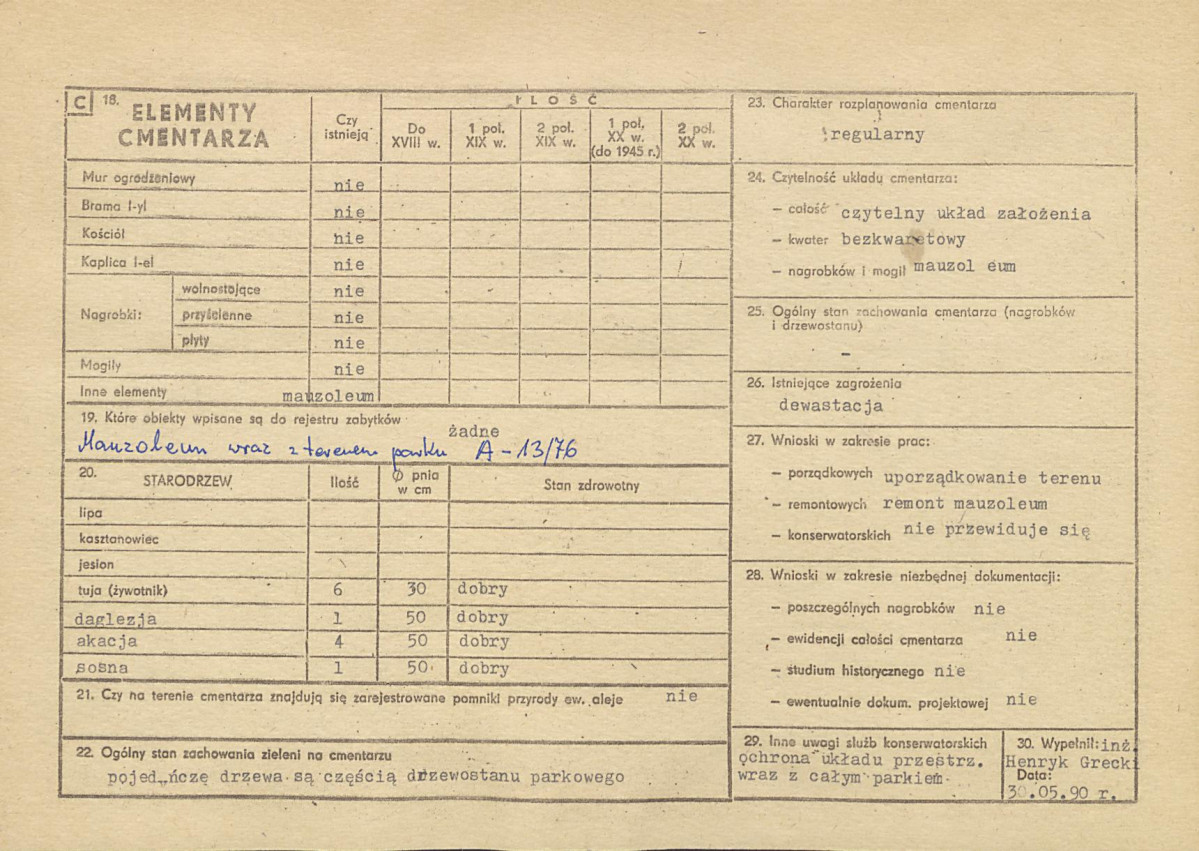 C 18. ELEMENTY
CMENTARZA
Czy
istnieją
IŁOŚĆ
Do
XVIII w.
1 poł.
XIX w.
2 poł.
XIX w.
1 poł.
XX w.
(do 1945 r.)
2 poł.
XX w.
Mur ogrodzeniowy nie
Brama I-yl nie
Kościół nie
Kaplica I-el nie
Nagrobki:
wolnostojące nie
przyścienne nie
płyty nie
Mogiły nie
Inne elementy mauzoleum
19. Które obiekty wpisane są do rejestru zabytków
żadne
Mauzoleum wraz z terenem parku A-13/76
20. STARODRZEW
Ilość
Ø pnia
w cm
Stan zdrowotny
lipa
kasztanowiec
jesion
tuja (żywotnik) 6 30 dobry
daglezja 1 50 dobry
akacja 4 50 dobry
sosna 1 50 dobry
21. Czy na terenie cmentarza znajdują się zarejestrowane pomniki przyrody ew. aleje nie
22. Ogólny stan zachowania zieleni na cmentarzu
pojed„ńczę drzewa są częścią drzewostanu parkowego
23. Charakter rozplanowania cmentarza
regularny
24. Czytelność układu cmentarza:
— całość czytelny układ założenia
— kwater bezkwaretowy
— nagrobków i mogił mauzol eum
25. Ogólny stan zachowania cmentarza (nagrobków
i drzewostanu)
—
26. Istniejące zagrożenia
dewastacja
27. Wnioski w zakresie prac:
— porządkowych uporządkowanie terenu
— remontowych remont mauzoleum
— konserwatorskich nie przewiduje się
28. Wnioski w zakresie niezbędnej dokumentacji:
— poszczególnych nagrobków nie
— ewidencji całości cmentarza nie
— studium historycznego nie
— ewentualnie dokum. projektowej nie
29. Inne uwagi służb konserwatorskich
ochrona układu przestrz.
wraz z całym parkiem
30. Wypełnił: inż.
Henryk Grecki
Data:
30.05.90 r.